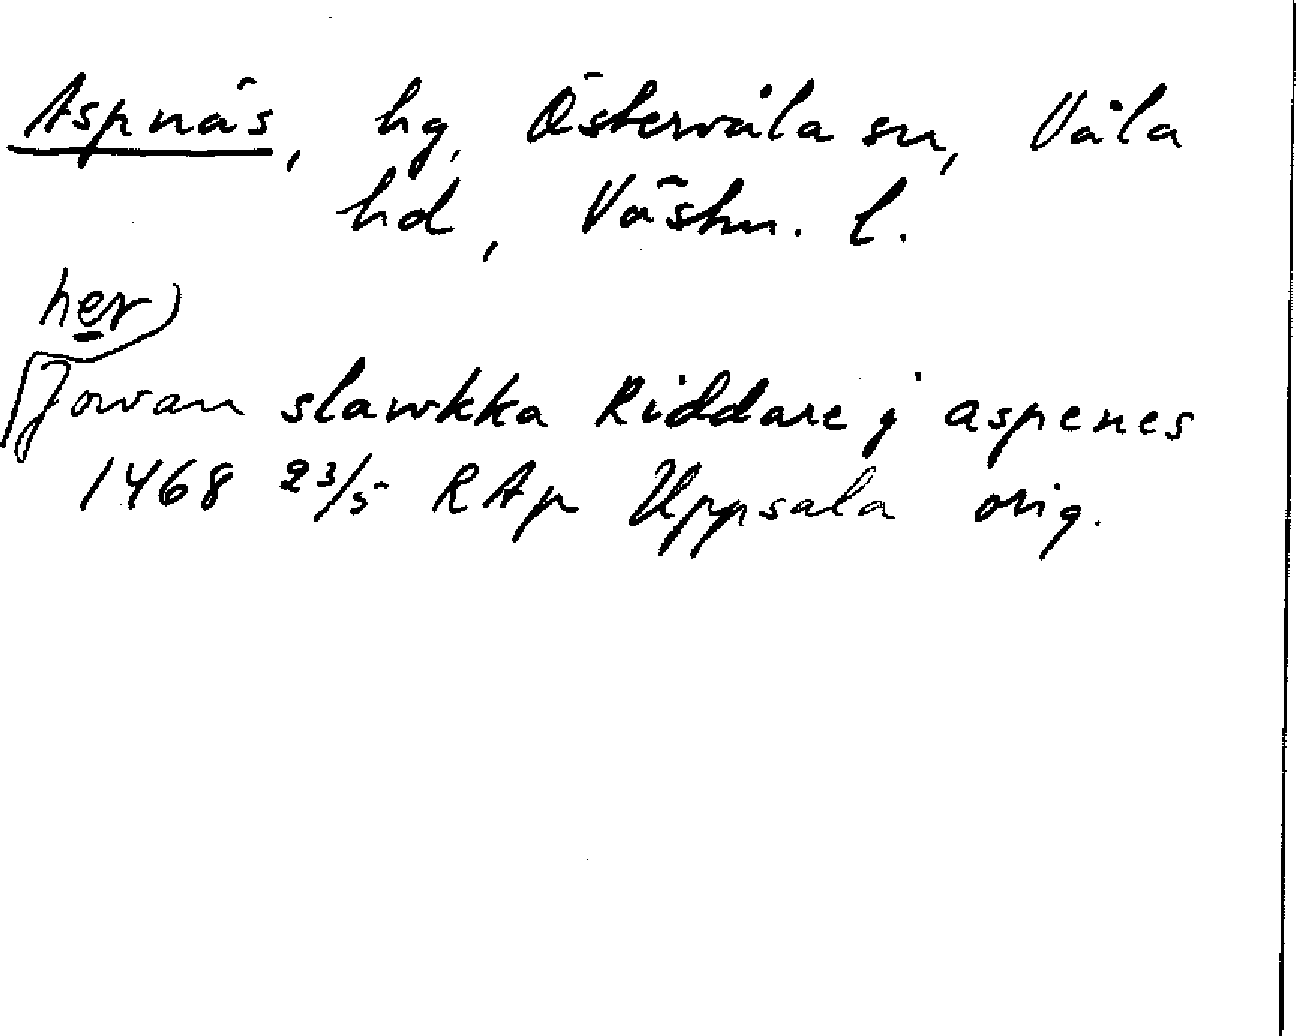 Aspnäs, hg, Östervåla sn, Våla
hd, Västm. l.
her
Jowan slawkka Riddare j aspenes
1468 23/5 RAp Uppsala orig.